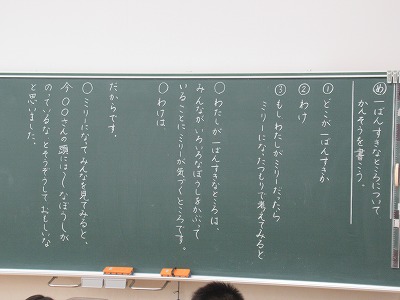 め 一ばんすきなところについて
かんそうを書こう。
① どこが一ばんすきか
② わけ
③ もし、わたしがミリーだったら
ミリーになったつもりで考えてみると
○わたしが一ばんすきなところは、
みんながいろいろなぼうしをかぶって
いることにミリーが気づくところです。
○わけは
だからです。
○ミリーになってみんなを見てみると、
今○○さんの頭には〜なぼうしが
のっているなとそうぞうしておもしろいな
と思いました。